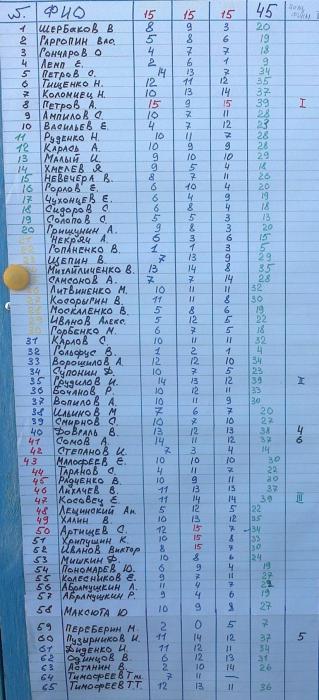 №. ФИО 15 15 15 45
1 Щербаков В 8 9 3 20
2 5 8 6 19
3 Гончаров О 4 7 7 18
4 2 6 1 9
5 Петров С. 14 13 7 34
6 Тищенко Н. 12 11 12 35
7 Коломиец Н. 10 13 14 37
8 Петров А. 15 9 15 39 I
9 Ампилов С. 10 7 11 28
10 Васильев Е. 4 7 12 23
11 Руденко Н. 10 11 7 28
12 Карась А. 10 9 9 28
13 Малый И. 9 10 10 29
14 Хмелев Я 9 5 4 18
15 Невечера В. 8 7 11 26
16 Горлов Е. 6 10 4 20
17 Чухонцев Е. 6 4 9 19
18 Сидоров С. 6 8 4 18
19 Солопов С. 5 5 3 13
20 Грищухин А. 9 8 3 20
Некряч А. 6 3 6 15
Гопаненко В. 1 1 3 5
Щепин В. 7 13 9 29
Михайличенко В. 13 14 8 35
Самсонов А. 7 7 14 28
Литвиненко М. 10 11 11 32
Косорыгин В. 11 11 8 30
Москаленко В. 5 8 6 19
Иванов Алекс. 5 12 5 22
Горбенко М. 6 7 5 18
31 Карлов С. 10 11 11 32
32 Гольфус В. 1 2 1 4
33 Ворошилов А. 12 12 10 34
34 10 7 5
35 Груздилов И. 14 13 12 39 II
36 Бочанов Р. 10 12 11 33
37 Вопилов А. 10 11 9 30
38 Ильинов М 7 6 7 20
39 Смирнов С. 10 7 10 27
40 Довгаль В. 13 12 13 38 4
41 Сомов А. 14 11 12 37 6
42 Степанов И. 7 3 4 14
43 Малофеев Е. 10 10 10 30
44 Таранов С. 4 11 7 22
45 Радченко В. 10 9 11 30
46 Лихачев В. 11 13 13 37
47 Косовец Е. 11 14 14 39 III
48 Лещинский Ан. 5 12 5 22
49 Халин В. 10 13 12 35
50 Артищев С. 12 15 7 34
51 Хрипушин К. 10 15 8 33
52 Иванов Виктор 8 15 7 30
53 Мишкин Ф. 10 8 6 24
54 Пономарев Ю. 6 9 4 19
55 Колесников Е. 9 7 11 27
56 Абрамушкин А. 11 4 7 22
57 Абрамушкин Р. 9 4 6 19
58 Максюта Ю 10 9 8 27
59 Переберин М. 2 0 5 7
60 Пузырников И. 11 14 12 37 5
61 Диденко И. 11 12 11 34
62 Одинцов В. 6 12 13 31
63 Астанин В. 2 10 14 26
64 Тимофеев Т.м. 7 11 —
65 Тимофеев Т.Т. 12 13 11 36